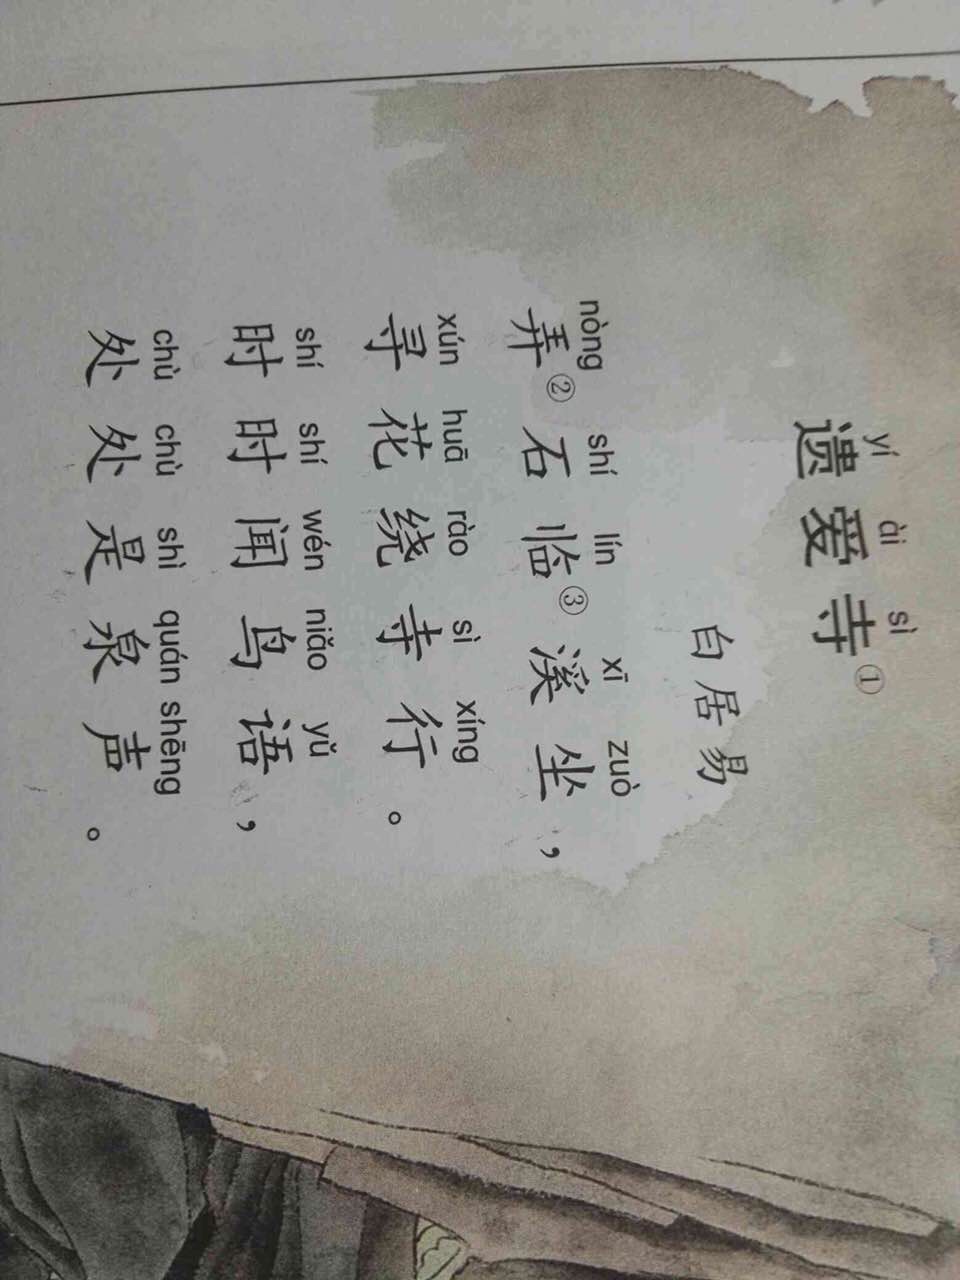 yí ài sì
遗爱寺①
白居易
nòng shí lín xī zuò
弄②石临③溪坐，
xún huā rào sì xíng
寻花绕寺行。
shí shí wén niǎo yǔ
时时闻鸟语，
chù chù shì quán shēng
处处是泉声。